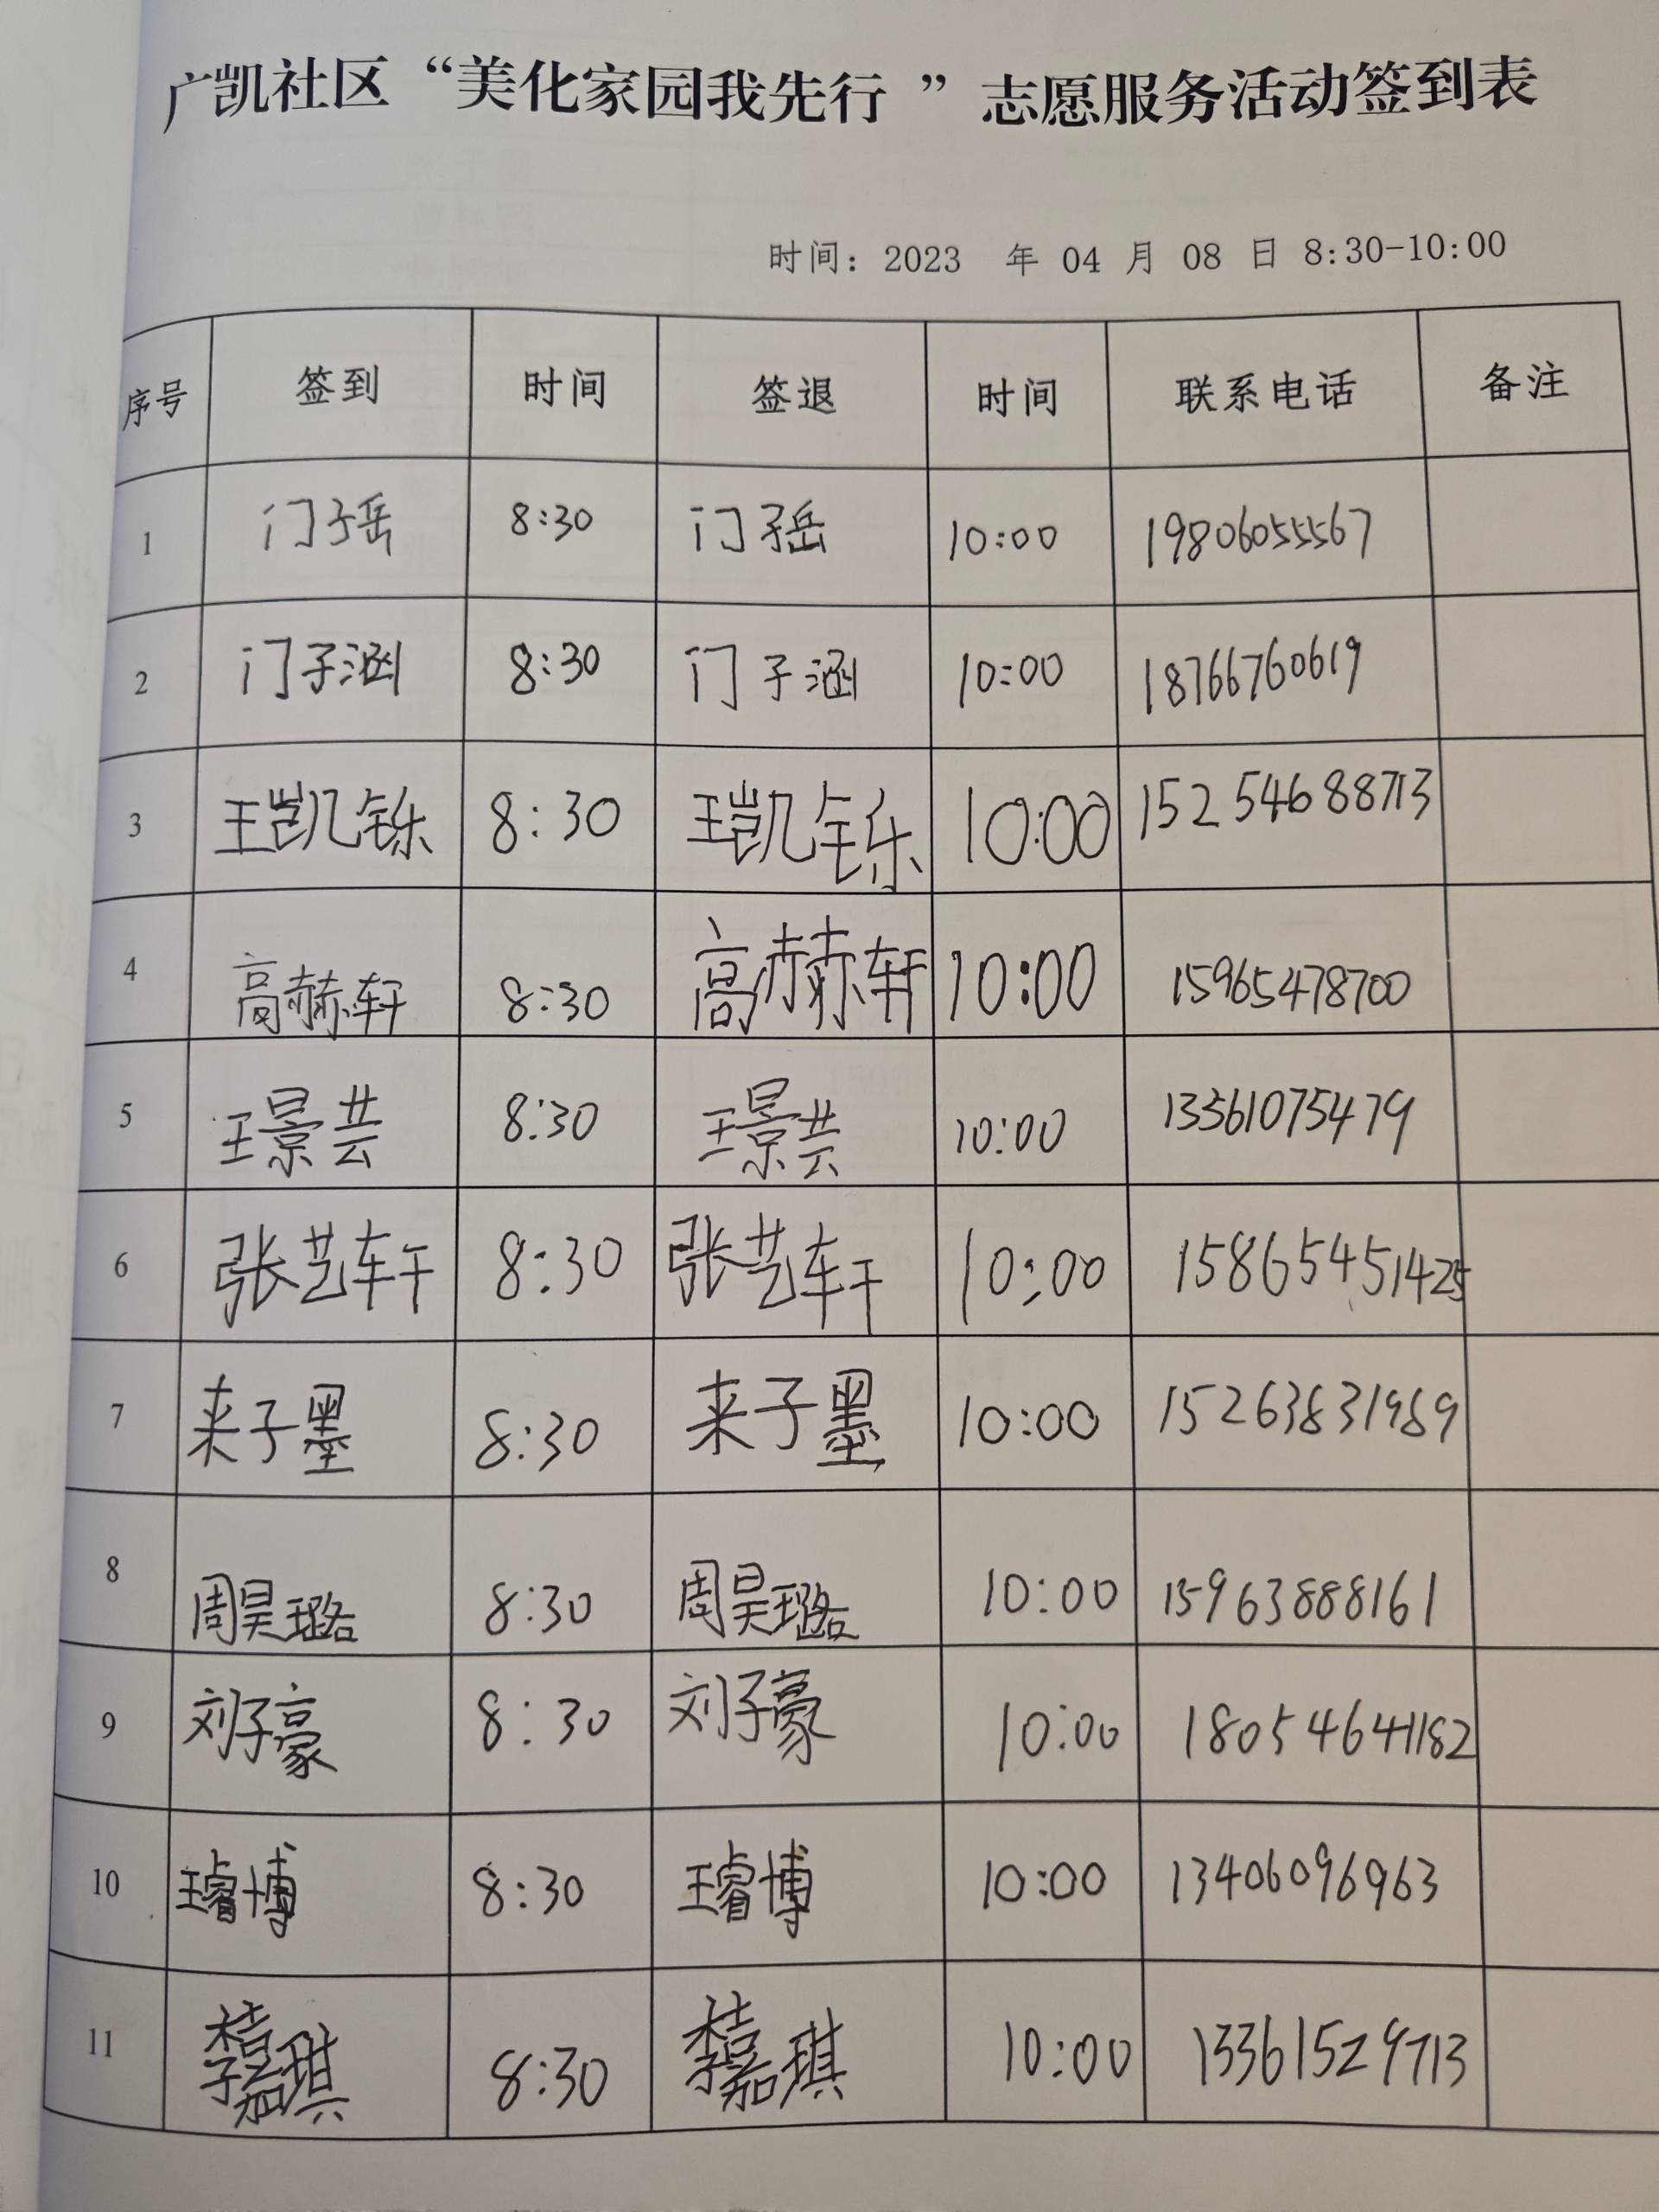 广凯社区“美化家园我先行 ”志愿服务活动签到表
时间：2023 年 04 月 08 日 8:30-10:00
序号 签到 时间 签退 时间 联系电话 备注
1 门子岳 8:30 门子岳 10:00 19806055567
2 门子涵 8:30 门子涵 10:00 18766760619
3 王凯铄 8:30 王凯铄 10:00 15254688713
4 高赫轩 8:30 高赫轩 10:00 15965478700
5 王景芸 8:30 王景芸 10:00 13361075479
6 张艺轩 8:30 张艺轩 10:00 15865451425
7 来子墨 8:30 来子墨 10:00 15263831989
8 周昊璐 8:30 周昊璐 10:00 15963888161
9 刘子豪 8:30 刘子豪 10:00 18054641182
10 王睿博 8:30 王睿博 10:00 13406096963
11 李嘉琪 8:30 李嘉琪 10:00 13361529713